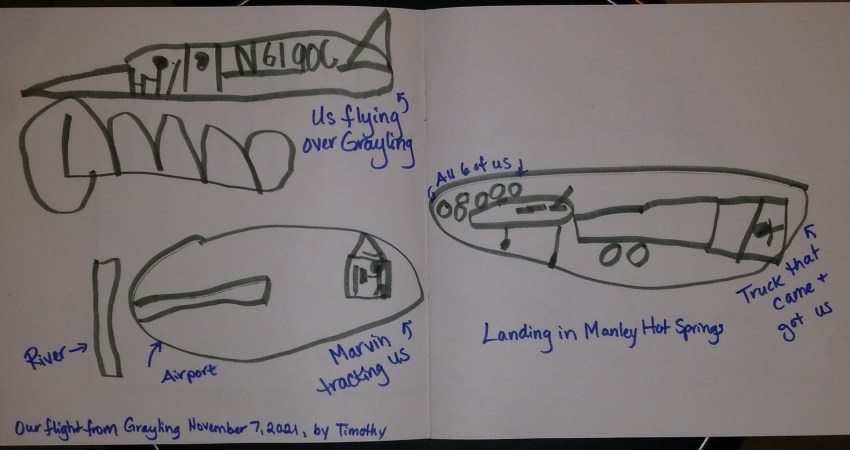 N6190C
Us flying
over Grayling
River→
Airport
Marvin
tracking us
Our flight from Grayling November 7, 2021, by Timothy
All 6 of us
Landing in Manley Hot Springs
Truck that
came +
got us